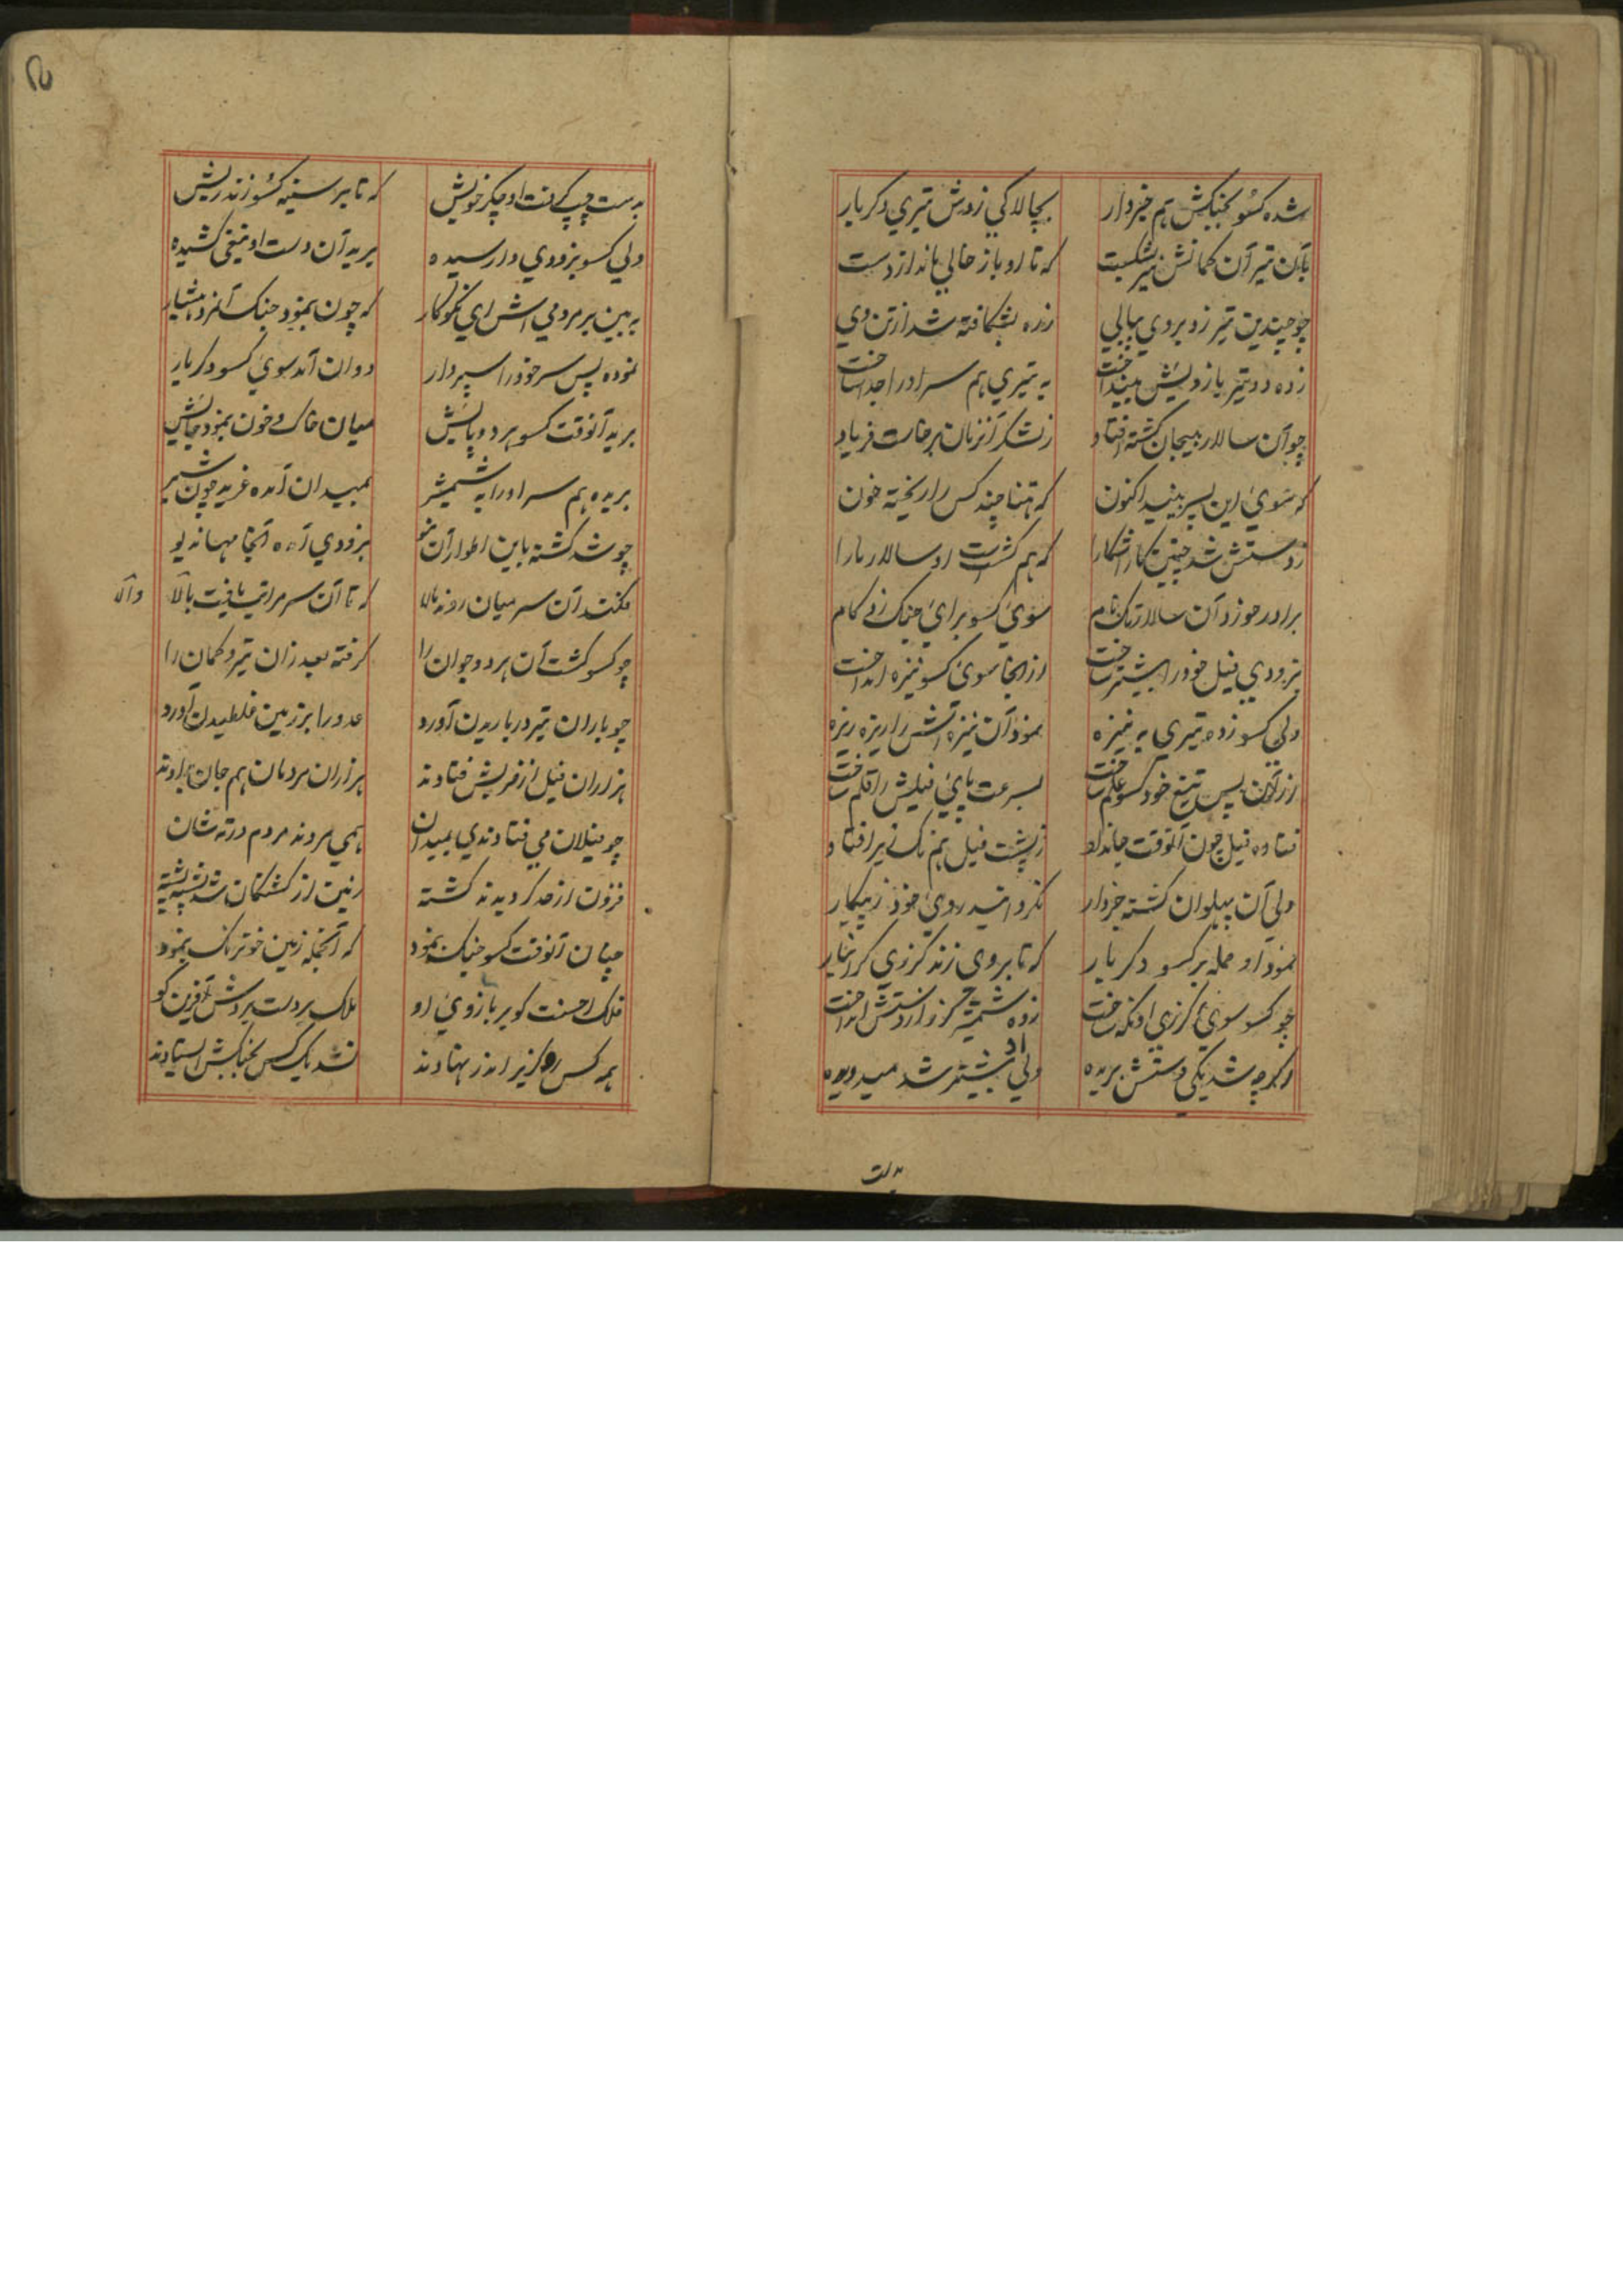 شده کسو بجنگش هم خبردار بچالاکی زدش تیری دکر بار
بآن تیر آن کمانش نیز بشکست که تا او باز خالی ماند از دست
چو چندین تیر زد بروی پیاپی زره بشکافته شد از تن وی
زده دو تیر بازویش بینداخت به تیری هم سر او را جدا ساخت
چو آن سالار بیجان کشته افتاد ز لشکر آنزمان برخاست فریاد
که سوی این پسر بینید اکنون که تنها چند کس را ریخته خون
ز دستش شد چنین کار آشکارا که هم کشت است او سالار ما را
برادر خورد آن سالار نام سوی کسو برای جنک زد کام
بزودی فیل خود را پیشتر ساخت از انجا سوی کسو نیزه انداخت
ولی کسو زده تیری به نیزه نمود آن نیزه اش را ریزه ریزه
از آن پس تیغ خود کسو علم ساخت بسرعت پای فیلش را قلم ساخت
فتاده فیل چون آنوقت جانداد ز پشت فیل هم نیز افتاد
ولی آن پهلوان کشته خبردار نکرداند روی خود ز پیکار
نمود او حمله بر کسو دکر بار که تا بروی زند کرزی کرانبار
چو کسو سوی کرزی او نکه ساخت زده شمشیر کرز از دستش انداخت
اکرچه شد یکی دستش بریده ولی او پیشتر شد میدویده
بدست
بدست چپ کرفت او چکر خویش که تا بر سینه کسو زند ریش
ولی کسو بزودی وا رسیده برید آن دست او تیغی کشیده
به بین بر مردمی اش ای نکوکار که چون بنمود جنک آنمرد هشیار
نموده پس سر خود را سپردار دوان آمد سوی کسو دکر بار
برید آنوقت کسو هر دو پایش میان خاک و خون بنمود جایش
بریده هم سر او را به شمشیر بمیدان آمده غرید چون شیر
چو شد کشته باین اطوار آن بزودی آمده آنجا مهاندیو
فکند آن سر میان روند مالا که تا آن سر مراتب یافت بالا
والا
چو کسو کشت آن هر دو جوان را کرفته بعد زان تیر و کمان را
چو باران تیر در باریدن آورد عدو را بر زمین غلطیدن آورد
هزاران فیل از ضربش فتادند هزاران مردمان هم جان بدادند
چو فیلان می فتادندی بمیدان همی مردند مردم در ته شان
فزون از حد کردیدند کشته زمین از کشتکان شد پشته پشته
چنان آنوقت کسو جنک بنمود که آنجمله زمین خونرنک بنمود
فلک احسنت کو بر بازوی او ملک بر دست بردش آفرین کو
همه کس رو کریز اندر نهادند نشد یک کس بجنکش ایستادند